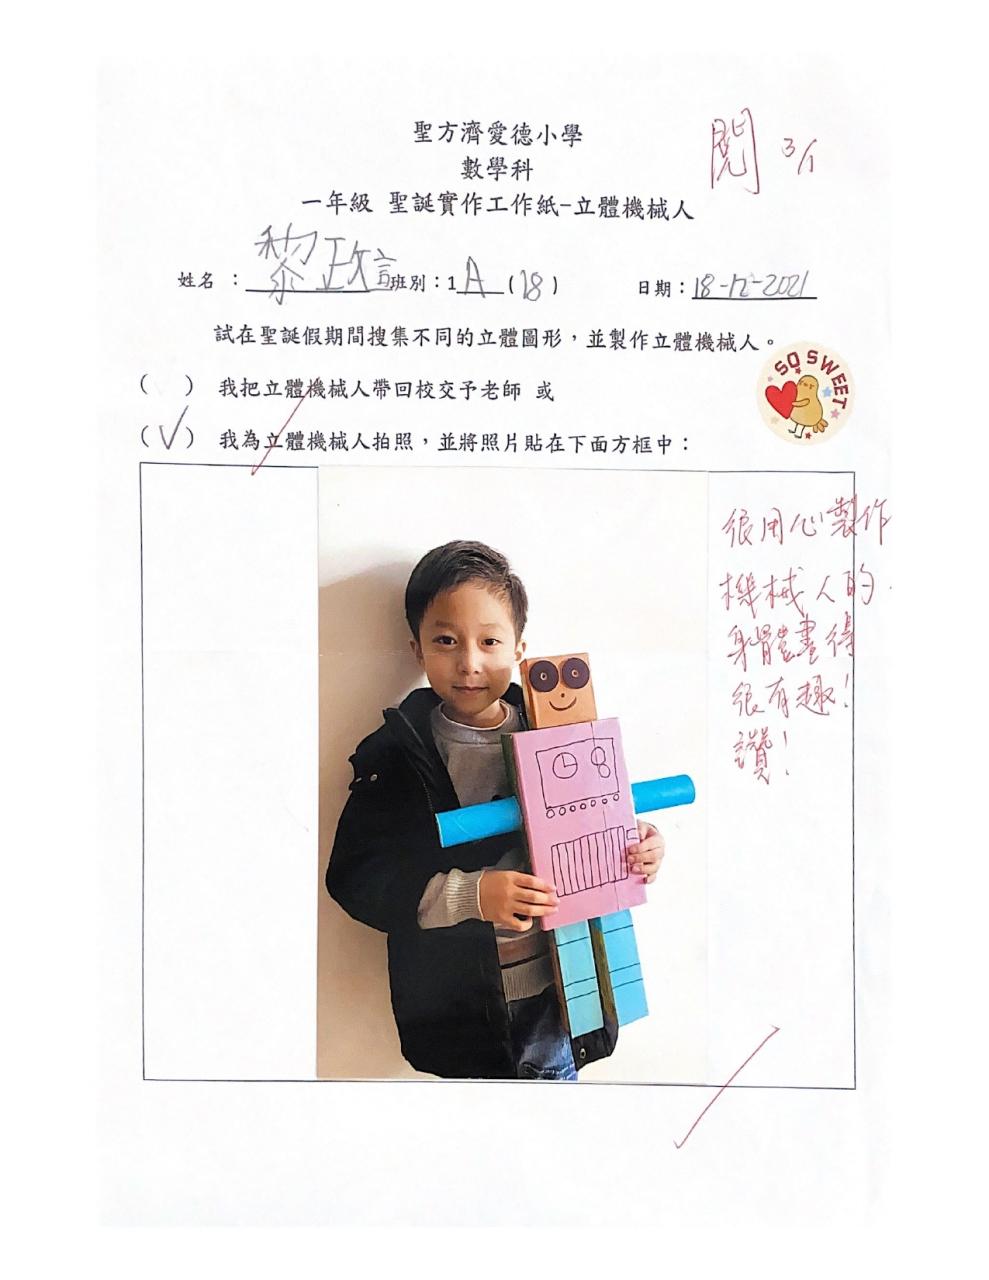 聖方濟愛德小學
數學科
一年級 聖誕實作工作紙-立體機械人
閱 3/1
姓名：黎政言 班別：1 A (18) 日期：18-12-2021
試在聖誕假期間搜集不同的立體圖形，並製作立體機械人。
( ) 我把立體機械人帶回校交予老師 或
(✓) 我為立體機械人拍照，並將照片貼在下面方框中：
SO SWEET
很用心製作
機械人的
身體畫得
很有趣！
讚！